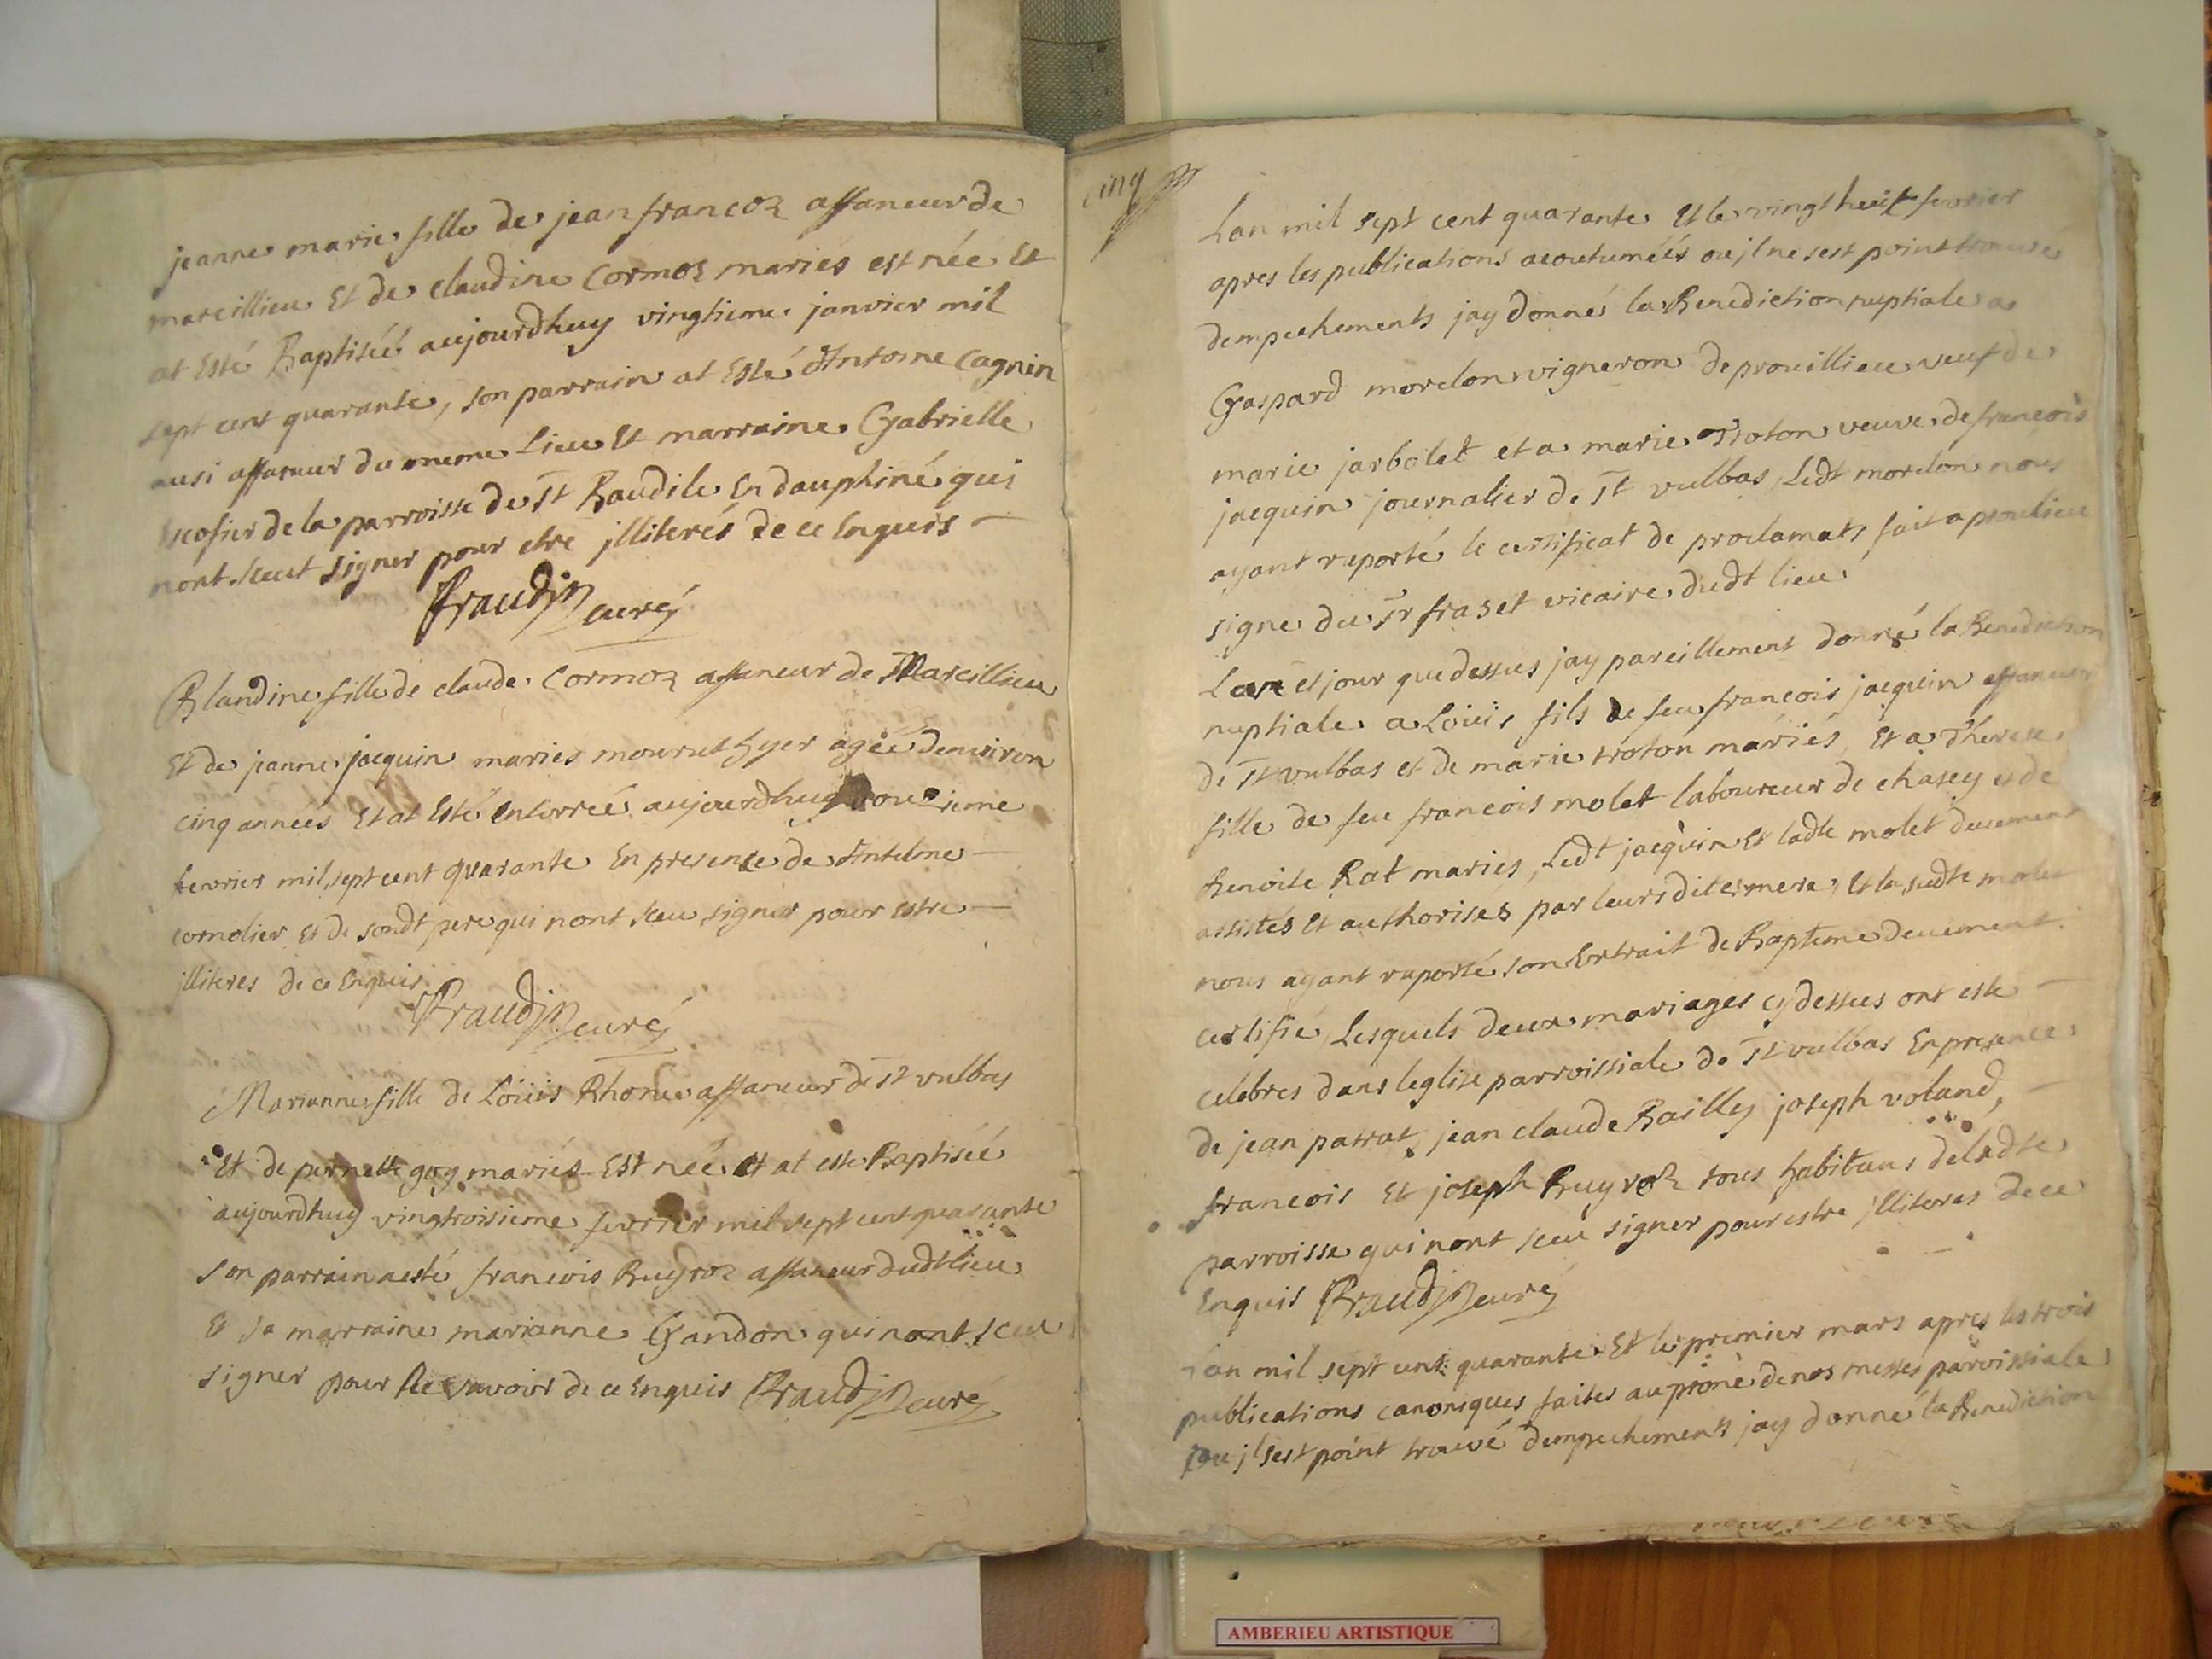 jeanne marie fille de jean francoz affaneur de
marcillieu Et de claudine Cormoz mariés est née Et
at Esté Baptiséé aujourdhuy vingtieme janvier mil
sept cent quarante, son parrain at Esté Antoine Cagnin
ausi affaneur du meme Lieu Et marraine Gabrielle
Escofier de la parroisse de St Baudile En dauphiné qui
nont sceut signer pour etre jlliterés de ce Enquis
Fraudin curé
Blandine fille de claude Cormoz affaneur de Marcillieu
Et de jeanne jacquin mariés mourut hyer agéé denviron
cinq annéés Et at Esté Enterréé aujourdhuy
fevrier mil sept cent quarante En presence de Antelme
cornolier Et de sondt pere qui nont sceu signer pour Estre
jlliteres de ce Enquis
Fraudin curé
Marianne fille de Loüis Rhone affaneur de St vulbas
Et de pernette guy mariés Est néé Et at este Baptiséé
aujourdhuy vingtroisieme fevrier mil sept cent quarante
son parrain a esté francois Buyroz affaneur dudt lieu
Et sa marraine marianne Gandon qui nont sceu
signer pour ne savoir de ce Enquis Fraudin curé
cinq
Lan mil sept cent quarante Et le vingt heit fevrier
apres les publications acoutuméés ou jl ne sest point trouvé
dempechements jay donné la Benediction nuptiale a
Gaspard morelon vigneron de prouillieu veuf de
marie jarbolet et a marie troton veuve de francois
jacquin journalier de St vulbas, Ledt morelon nous
ayant raporté le certificat de proclamats fait a proulieu
signe du Sr fraset vicaire dudt lieu
Lan et jour que dessus jay pareillement donné la Benediction
nuptiale a Loüis fils de feu francois jacquin affaneur
de St vulbas et de marie troton mariés, Et a Therese
fille de feu francois molet laboureur de chasey et de
Benoite Rat mariés, Ledt jacquin Et ladte molet duement
assistés Et authorises par leurs dites mere, Et la sudte molet
nous ayant raporté son Extrait de Bapteme deuement
certifié, Lesquels deux mariages cy dessus ont este
celebres dans leglise parroissiale de St vulbas En presence
de jean patrat, jean claude Bailly joseph voland,
francois Et joseph Buyroz tous habitans deladte
parroisse qui nont sceu signer pour estre jlliteres de ce
Enquis Fraudin curé
Lan mil sept cent quarante Et le premier mars apres les trois
publications canoniques faites au prone de nos messes parroissiale
ou jl sest point trouvé dempechements jay donné la Benediction
AMBERIEU ARTISTIQUE